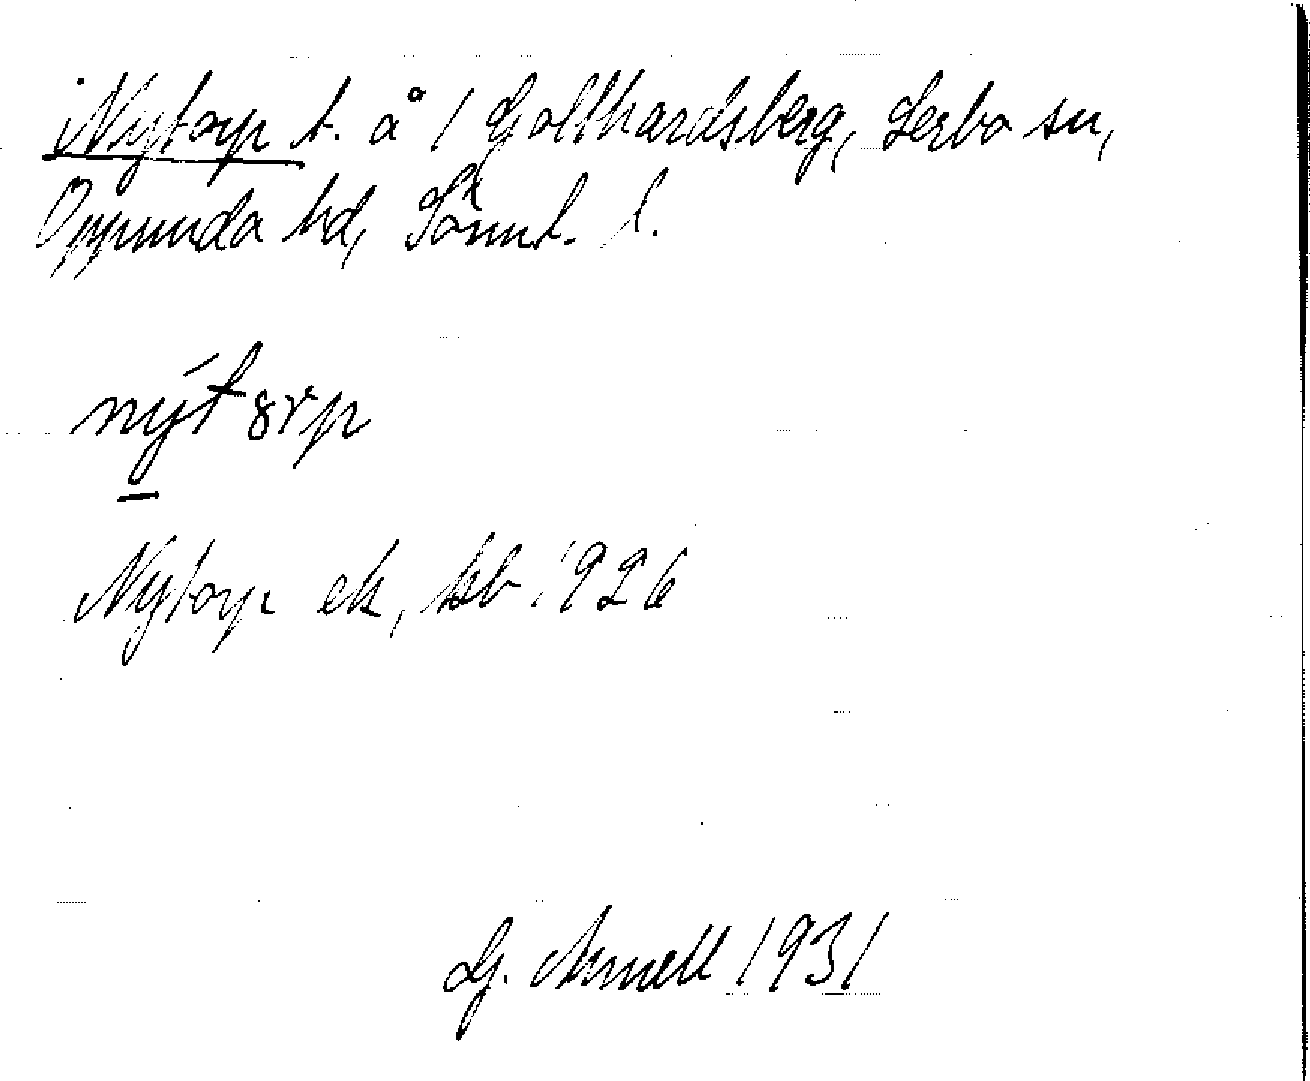 Nytorp t. å 1 Gotthardsberg, Lerbo sn,
Oppunda hd, Sörml. l.
nýt8rp
Nytorp ek, kb. 1926
G. Arnell 1931